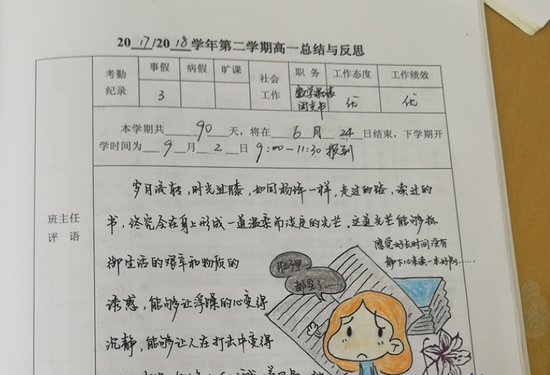 2017/2018学年第二学期高一总结与反思
考勤纪录 事假 病假 旷课 社会工作 职务 工作态度 工作绩效
3 数学课代 团支书 优 优
本学期共 90 天,将在 6 月 24 日结束,下学期开
学时间为 9 月 2 日 9:00-11:30 报到
班主任
评语
岁月流转,时光过膝,如同杨绛一样,走过的路,读过的
书,终究会在身上形成一道温柔而淡定的光芒。这道光芒能够抵
御生活的艰辛和物质的
诱惑,能够让浮躁的心变得
沉静,能够让人在打击中变得
感觉好长时间没有
静下心来读一本好书